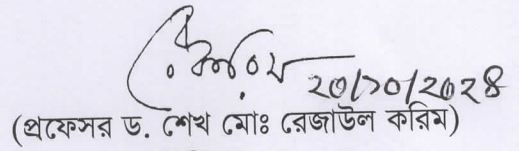 ২০/১০/২০২৪
(প্রফেসর ড. শেখ মোঃ রেজাউল করিম)